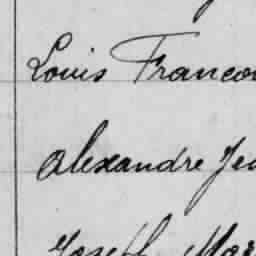 Louis Francou
Alexandre Jea
Joseph Mar